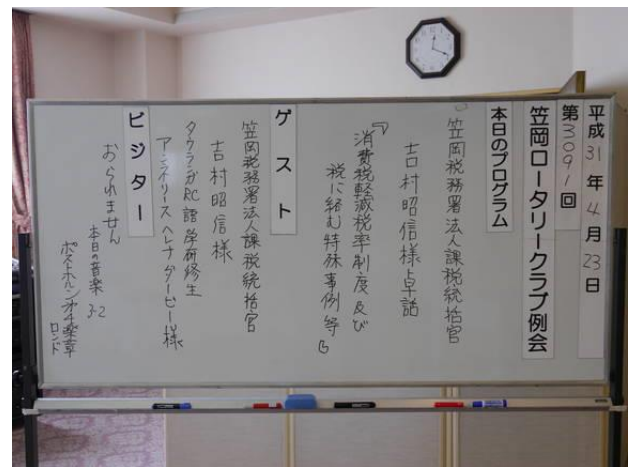 平成31年4月23日
第3091回
笠岡ロータリークラブ例会
本日のプログラム
笠岡税務署法人課税統括官
吉村昭信様卓話
『消費税軽減税率制度及び
税に絡む特殊事例等』
ゲスト
笠岡税務署法人課税統括官
吉村昭信様
タウランガRC語学研修生
アンネリース ヘレナ ダービー様
ビジター
おられません
本日の音楽 3-2
ポストホルン 楽章
ロンド